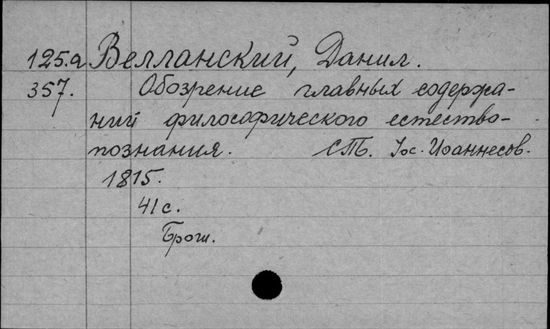 125.a Велланский, Данил.
357. Обозрение главных содержа-
ний философического естество-
познания. СПб. Iос. Иоаннесов.
1815.
41 с.
Брош.